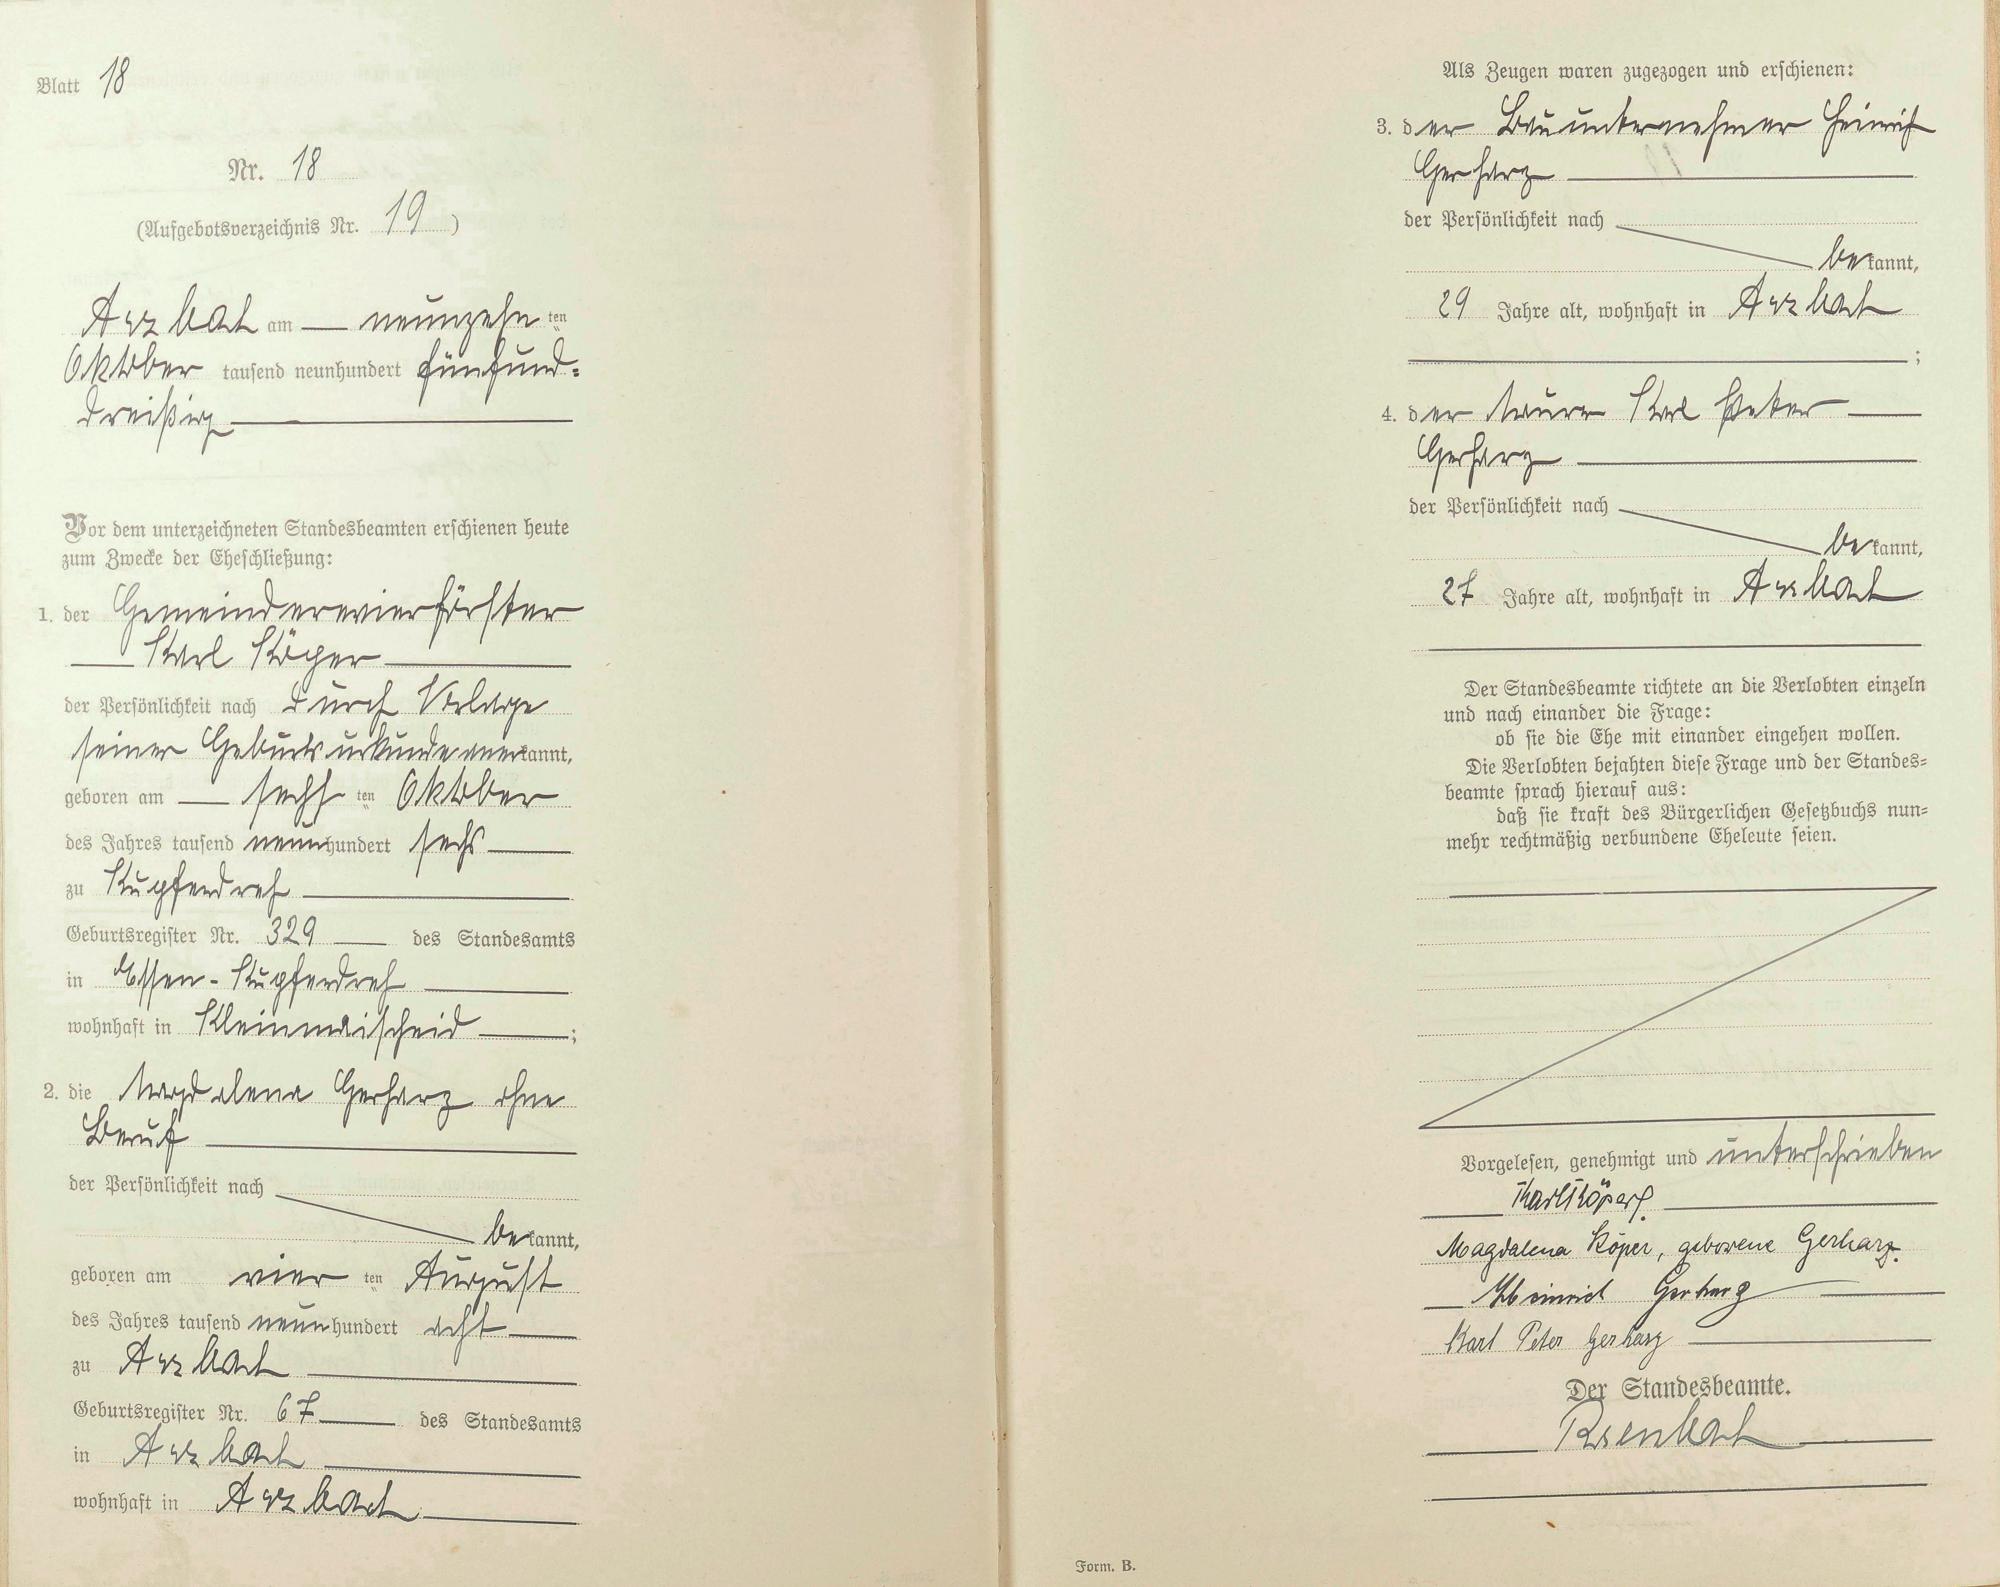 Blatt 18
Nr. 18
(Aufgebotsverzeichnis Nr. 19)
Arzbach am — neunzehn ten
Oktober tausend neunhundert fünfund-
dreißig
Vor dem unterzeichneten Standesbeamten erschienen heute
zum Zwecke der Eheschließung:
1. der Gemeinderevierförster
Karl Köper
der Persönlichkeit nach durch Vorlage
seiner Geburtsurkunde anerkannt,
geboren am — sechs ten Oktober
des Jahres tausend neunhundert sechs
zu Kupferdreh
Geburtsregister Nr. 329 des Standesamts
in Essen-Kupferdreh
wohnhaft in Kleinmaischeid ;
2. die Magdalena Gerharz ohne
Beruf
der Persönlichkeit nach
bekannt,
geboren am vier ten August
des Jahres tausend neunhundert acht
zu Arzbach
Geburtsregister Nr. 67 des Standesamts
in Arzbach
wohnhaft in Arzbach
Als Zeugen waren zugezogen und erschienen:
3. der Bauunternehmer Heinrich
Gerharz
der Persönlichkeit nach
bekannt,
29 Jahre alt, wohnhaft in Arzbach
;
4. der Maurer Karl Peter
Gerharz
der Persönlichkeit nach
bekannt,
27 Jahre alt, wohnhaft in Arzbach
Der Standesbeamte richtete an die Verlobten einzeln
und nach einander die Frage:
ob sie die Ehe mit einander eingehen wollen.
Die Verlobten bejahten diese Frage und der Standes-
beamte sprach hierauf aus:
daß sie kraft des Bürgerlichen Gesetzbuchs nun-
mehr rechtmäßig verbundene Eheleute seien.
Vorgelesen, genehmigt und unterschrieben
Karl Köper
Magdalena Köper, geborene Gerharz.
Heinrich Gerharz
Karl Peter Gerharz
Der Standesbeamte.
Form. B.